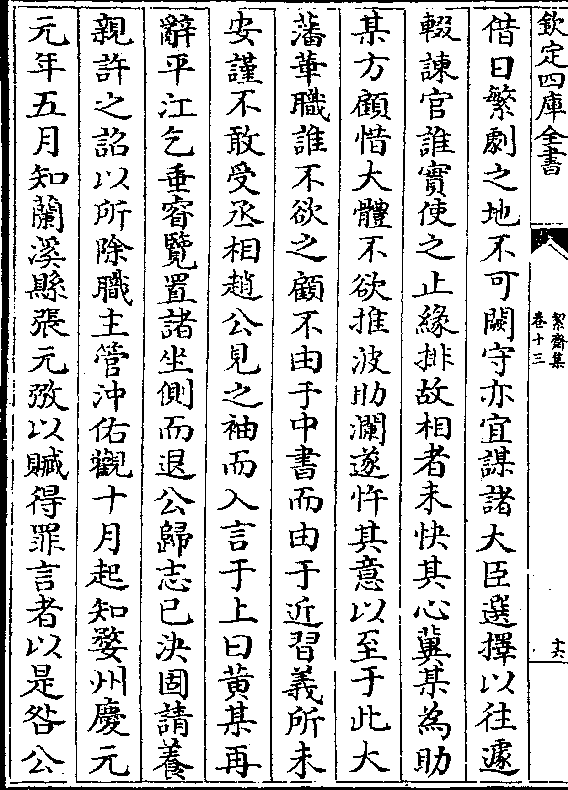 欽定四庫全書
絜齋集
卷十三
十六
借曰繁劇之地不可闕守亦宜謀諸大臣選擇以往遽
輟諫官誰實使之止緣排故相者未快其心冀某為助
某方顧惜大體不欲推波助瀾遂忤其意以至于此大
藩華職誰不欲之顧不由于中書而由于近習義所未
安謹不敢受丞相趙公見之袖而入言于上曰黄某再
辭平江乞垂睿覽置諸坐側而退公歸志已決固請養
親許之詔以所除職主管沖佑觀十月起知婺州慶元
元年五月知蘭溪縣張元弢以贓得罪言者以是咎公